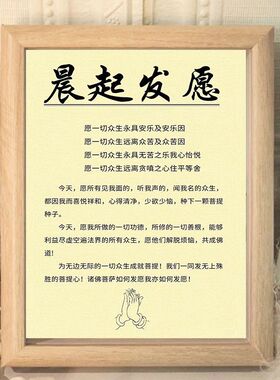 晨起发愿
愿一切众生永具安乐及安乐因
愿一切众生远离众苦及众苦因
愿一切众生永具无苦之乐我心怡悦
愿一切众生远离贪嗔之心住平等舍
今天，愿所有见我面的，听我声的，闻我名的众生，
都因我而喜悦祥和，心得清净，少欲少恼，种下一颗菩提
种子。
今天，愿我所做的一切功德，所修的一切善根，能够
利益尽虚空遍法界的所有众生，愿他们解脱烦恼，共成佛
道！
为无边无际的一切众生成就菩提！我们一同发无上殊
胜的菩提心！诸佛菩萨如何发愿我亦如何发愿！